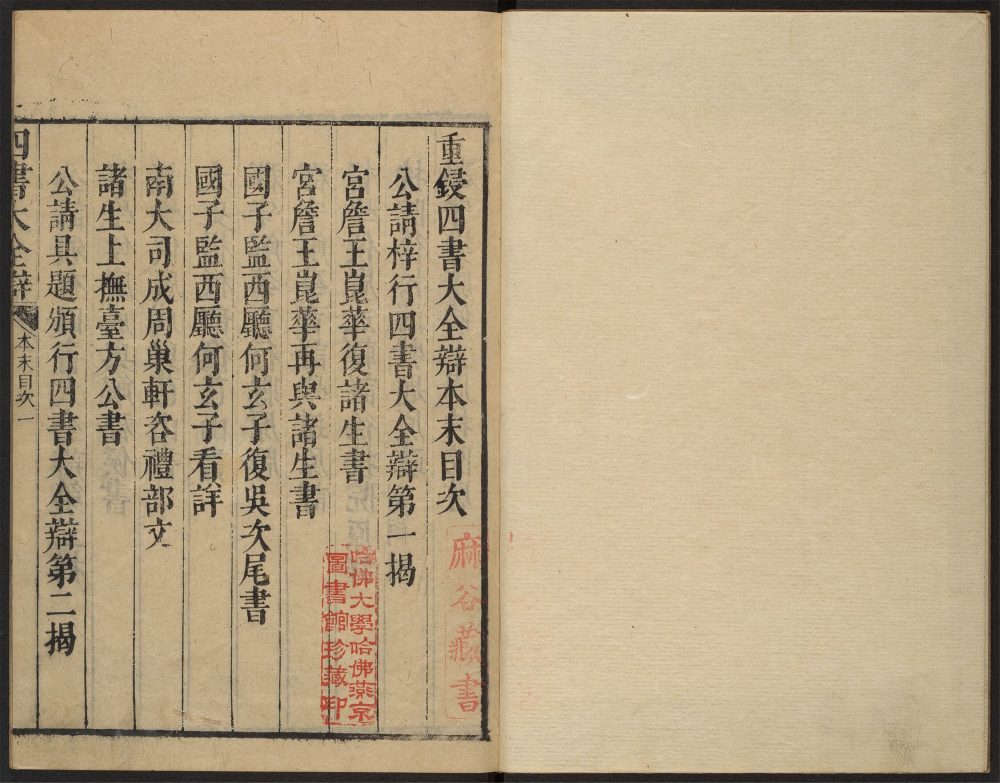 重鋟四書大全辯本末目次
公請梓行四書大全辯第一揭
宮詹王崑華復諸生書
宮詹王崑華再與諸生書
國子監西廳何玄子復吳次尾書
國子監西廳何玄子看詳
南大司成周巢軒咨禮部文
諸生上撫臺方公書
公請具題頒行四書大全辯第二揭
四書大全辯
本末目次一
麻谷藏書
哈佛大學哈佛燕京
圖書館珍藏印